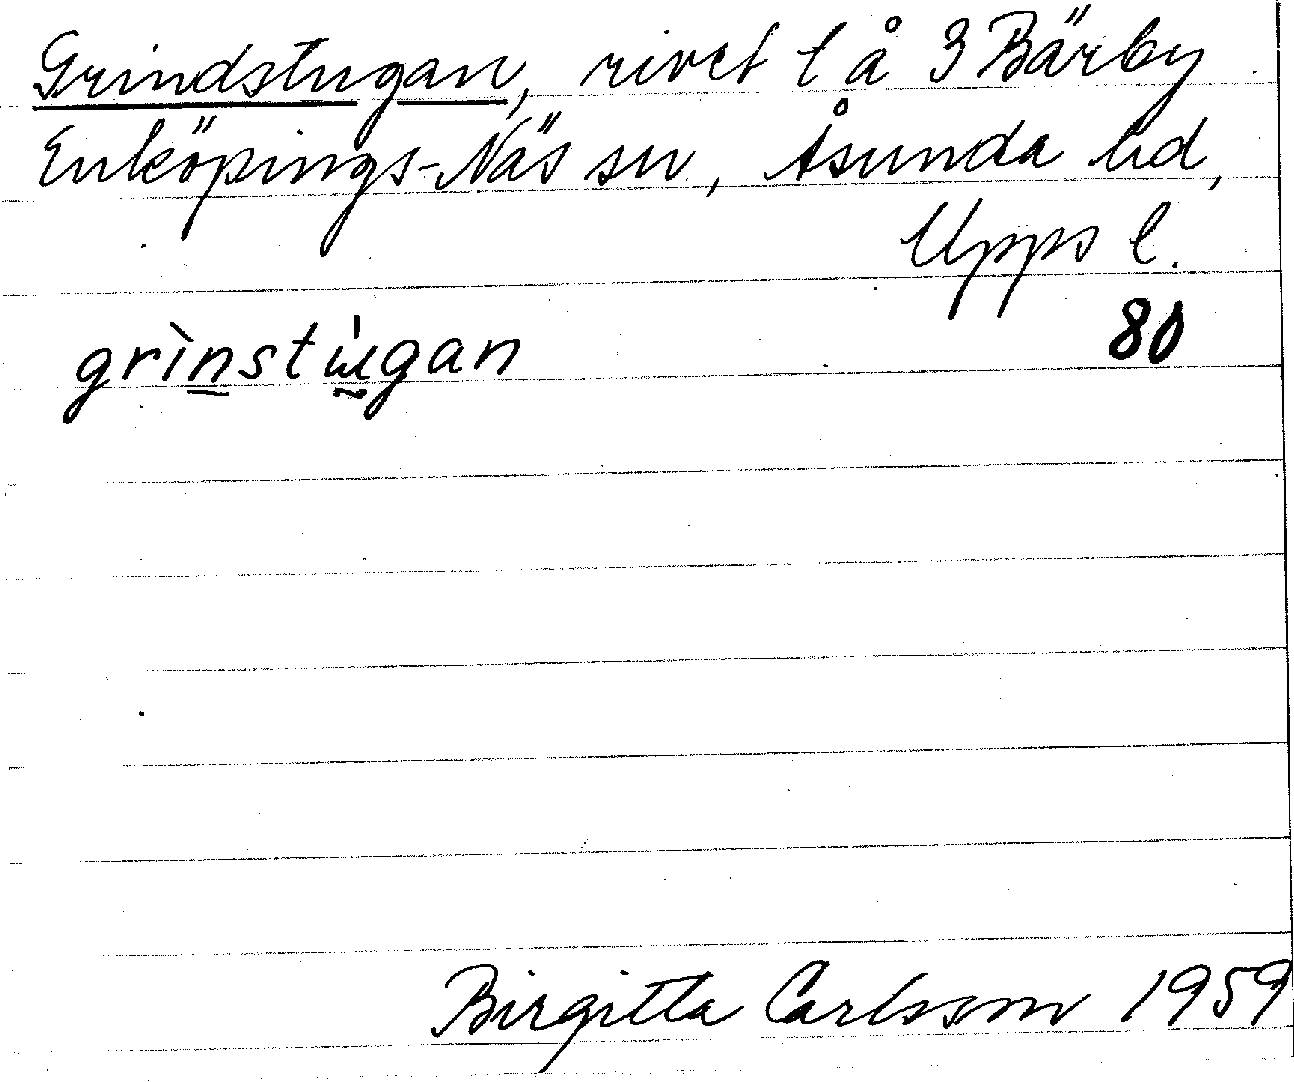 Grindstugan, rivet t å 3 Bärby
Enköpings-Näs sn, Åsunda hd,
Upps l.
80
grìn̳stɯ̰̀̍gan
Birgitta Carlsson 1959